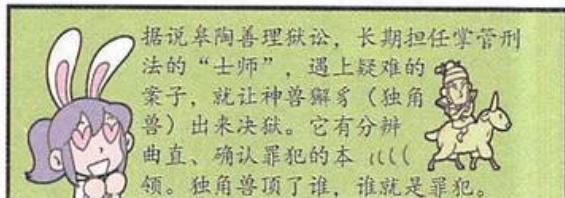 据说皋陶善理狱讼，长期担任掌管刑
法的“士师”，遇上疑难的
案子，就让神兽獬豸（独角
兽）出来决狱。它有分辨
曲直、确认罪犯的本
领。独角兽顶了谁，谁就是罪犯。